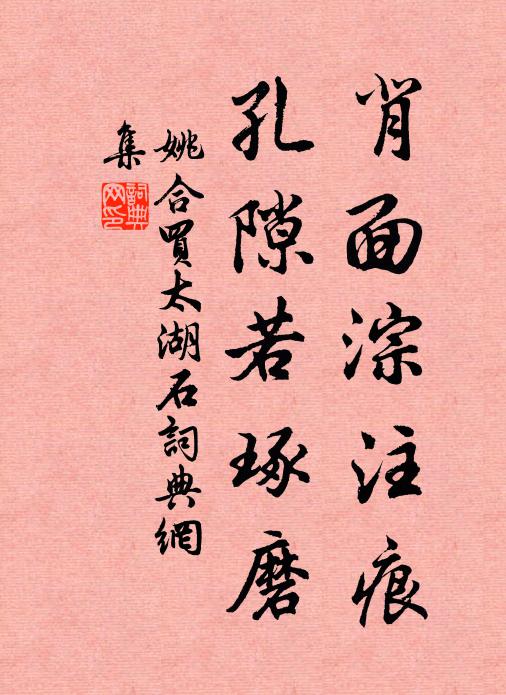 背面淙注痕
孔隙若琢磨
姚合買太湖石詞典網
集
詞典
网印